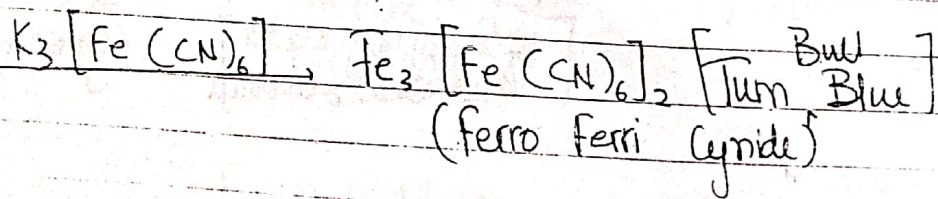 K₃[Fe(CN)₆] → Fe₃[Fe(CN)₆]₂ [Turn Bull Blue]
(Ferro Ferri Cynide)